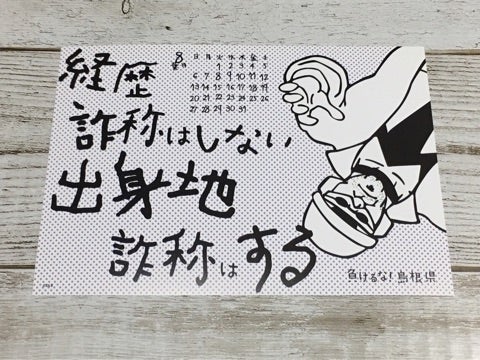 経歴
詐称はしない
出身地
詐称はする
8
日 月 火 水 木 金 土
1 2 3 4 5
6 7 8 9 10 11 12
13 14 15 16 17 18 19
20 21 22 23 24 25 26
27 28 29 30 31
負けるな!島根県